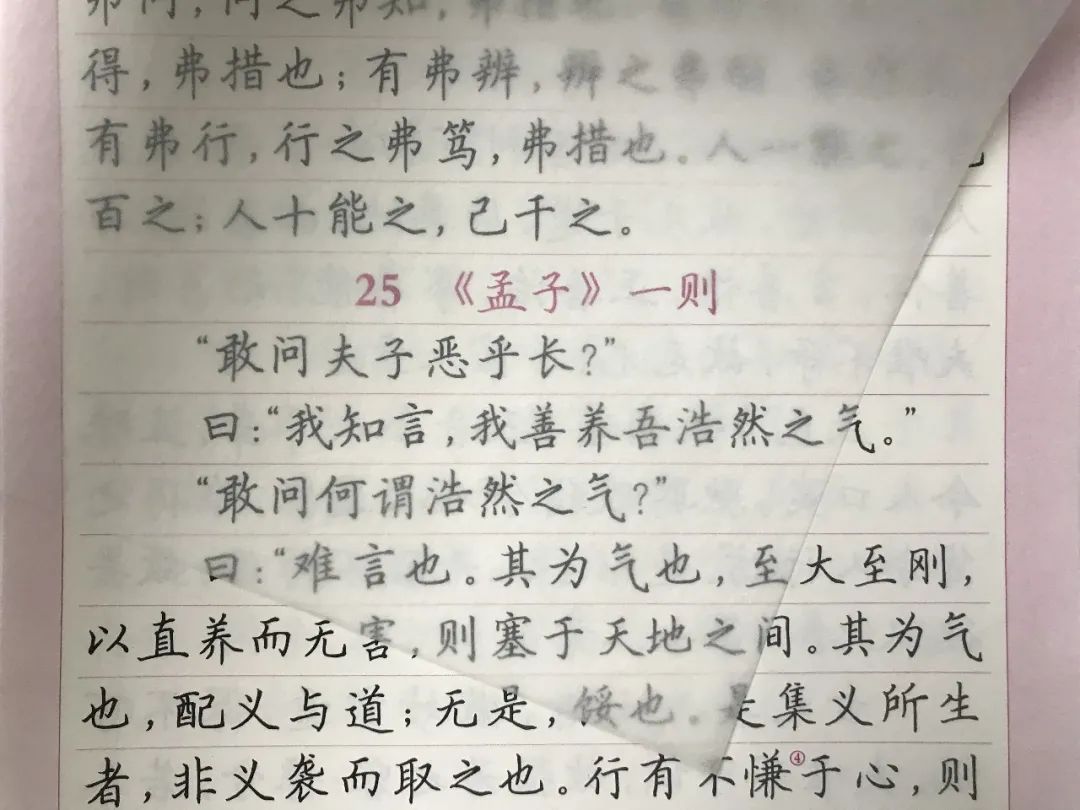 弗问，问之弗知，弗措
得，弗措也；有弗辨，辨之弗
有弗行，行之弗笃，弗措也。人一
百之；人十能之，己千之。
25 《孟子》一则
“敢问夫子恶乎长？”
曰：“我知言，我善养吾浩然之气。”
“敢问何谓浩然之气？”
曰：“难言也。其为气也，至大至刚，
以直养而无害，则塞于天地之间。其为气
也，配义与道；无是，馁也。是集义所生
者，非义袭而取之也。行有不慊④于心，则